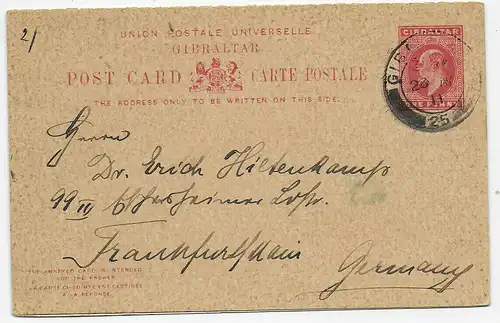 2/
UNION POSTALE UNIVERSELLE
GIBRALTAR
GIBRALTAR
POST CARD CARTE POSTALE
THE ADDRESS ONLY TO BE WRITTEN ON THIS SIDE.
ONE PENNY
11
25
Herrn
Dr. Erich Hiltenkamp
99 II
Frankfurt Main
Germany
THE ANNEXED CARD IS INTENDED
FOR THE ANSWER
LA CARTE CI-JOINTE EST DESTINÉE
À LA RÉPONSE